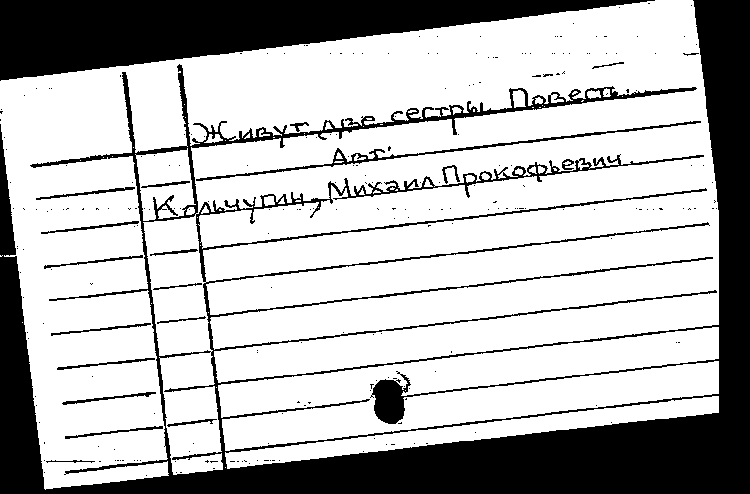 Живут две сестры. Повесть.
Авт:
Кольчугин, Михаил Прокофьевич.